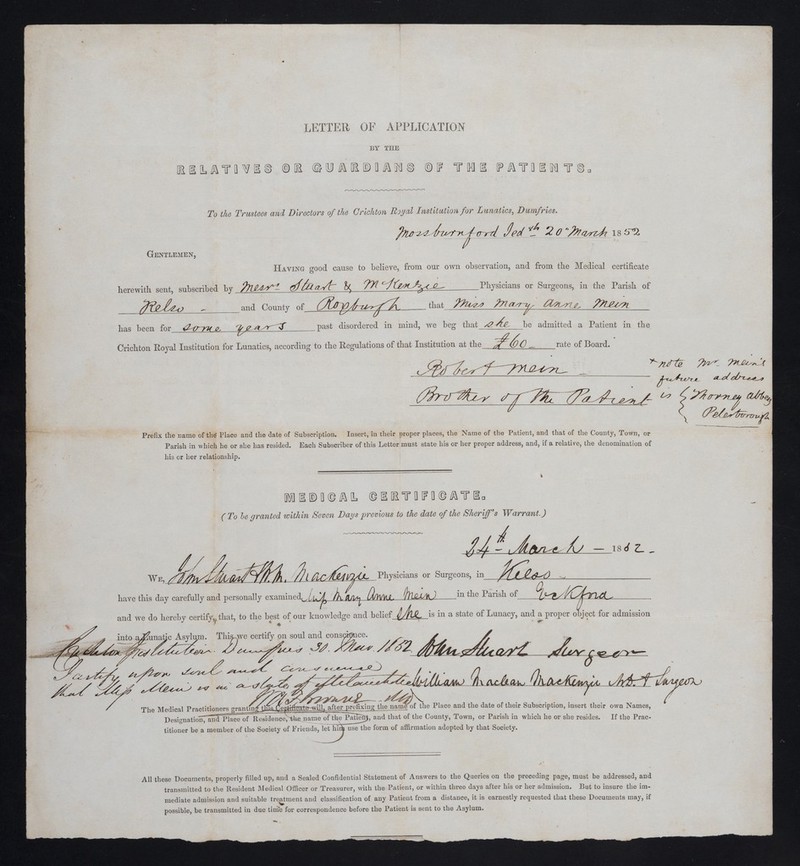 LETTER OF APPLICATION
BY THE
RELATIVES OR GUARDIANS OF THE PATIENTS.
To the Trustees and Directors of the Crichton Royal Institution for Lunatics, Dumfries.
Mossburnford Jedth 20 March 1852
GENTLEMEN,
HAVING good cause to believe, from our own observation, and from the Medical certificate
herewith sent, subscribed by Messrs Stuart & McKenzie Physicians or Surgeons, in the Parish of
Kelso and County of Roxburgh that Miss Mary Anne Mein
has been for some years past disordered in mind, we beg that she be admitted a Patient in the
Crichton Royal Institution for Lunatics, according to the Regulations of that Institution at the £60 rate of Board.
Robert Mein
Brother of the Patient
+ note Mr. Mein's
future address
is Thorney Abbey
Peterborough
Prefix the name of the Place and the date of Subscription. Insert, in their proper places, the Name of the Patient, and that of the County, Town, or
Parish in which he or she has resided. Each Subscriber of this Letter must state his or her proper address, and, if a relative, the denomination of
his or her relationship.
MEDICAL CERTIFICATE.
(To be granted within Seven Days previous to the date of the Sheriff's Warrant.)
24th March 1852
WE, Stuart W.M. MacKenzie Physicians or Surgeons, in Kelso
have this day carefully and personally examined Miss Mary Anne Mein in the Parish of Eckford
and we do hereby certify, that, to the best of our knowledge and belief She is in a state of Lunacy, and a proper object for admission
into a Lunatic Asylum. This we certify on soul and conscience.
John Stuart Surgeon
William Maclean Mackenzie M.D. & Surgeon
Crichton Institution Dumfries 30. Mar. 1852
I certify upon soul and conscience
that Miss Mein is in a state of
The Medical Practitioners granting this Certificate will, after prefixing the name of the Place and the date of their Subscription, insert their own Names,
Designation, and Place of Residence, the name of the Patient, and that of the County, Town, or Parish in which he or she resides. If the Prac-
titioner be a member of the Society of Friends, let him use the form of affirmation adopted by that Society.
All these Documents, properly filled up, and a Sealed Confidential Statement of Answers to the Queries on the preceding page, must be addressed, and
transmitted to the Resident Medical Officer or Treasurer, with the Patient, or within three days after his or her admission. But to insure the im-
mediate admission and suitable treatment and classification of any Patient from a distance, it is earnestly requested that these Documents may, if
possible, be transmitted in due time for correspondence before the Patient is sent to the Asylum.